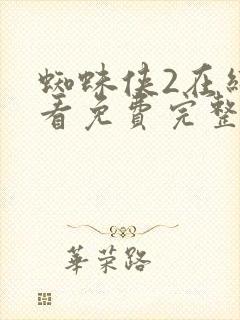 蜘蛛侠2在
看免費完整
華荣路